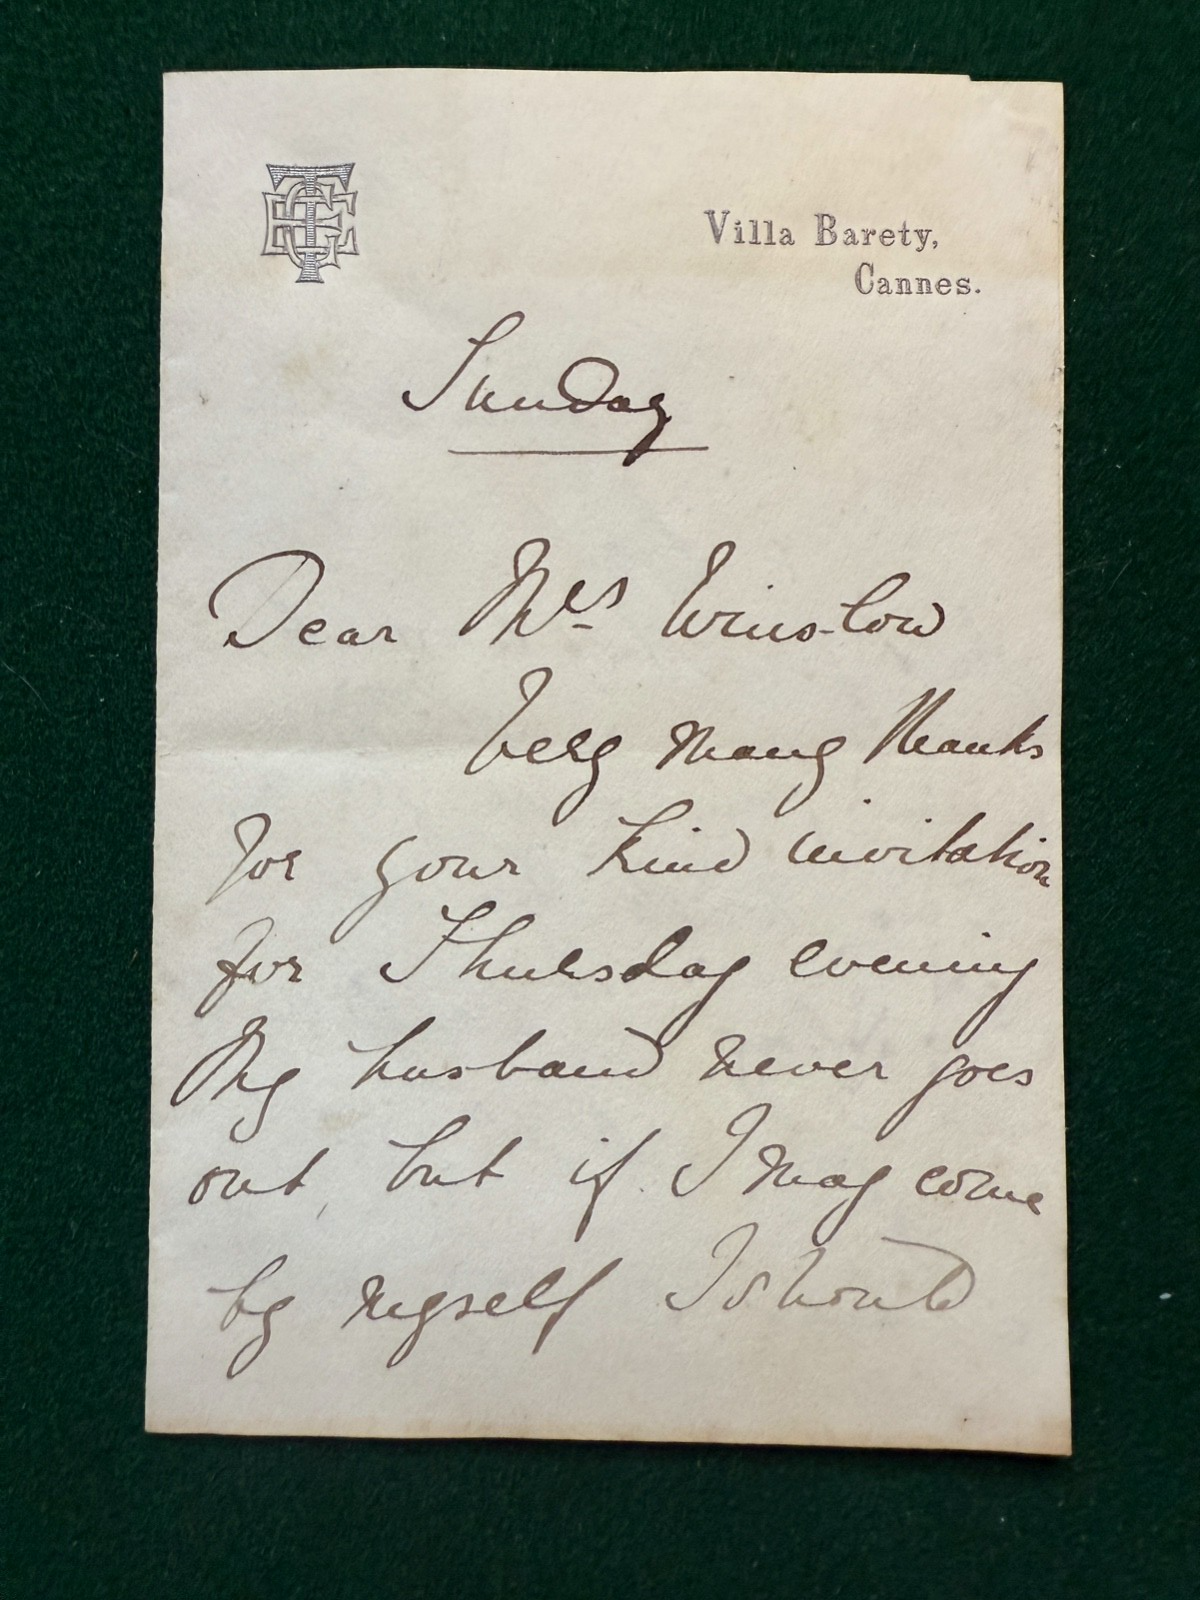 Villa Barety,
Cannes.
Sunday
Dear Mrs Winslow
Very many thanks
for your kind invitation
for Thursday evening
My husband never goes
out, but if I may come
by myself I should